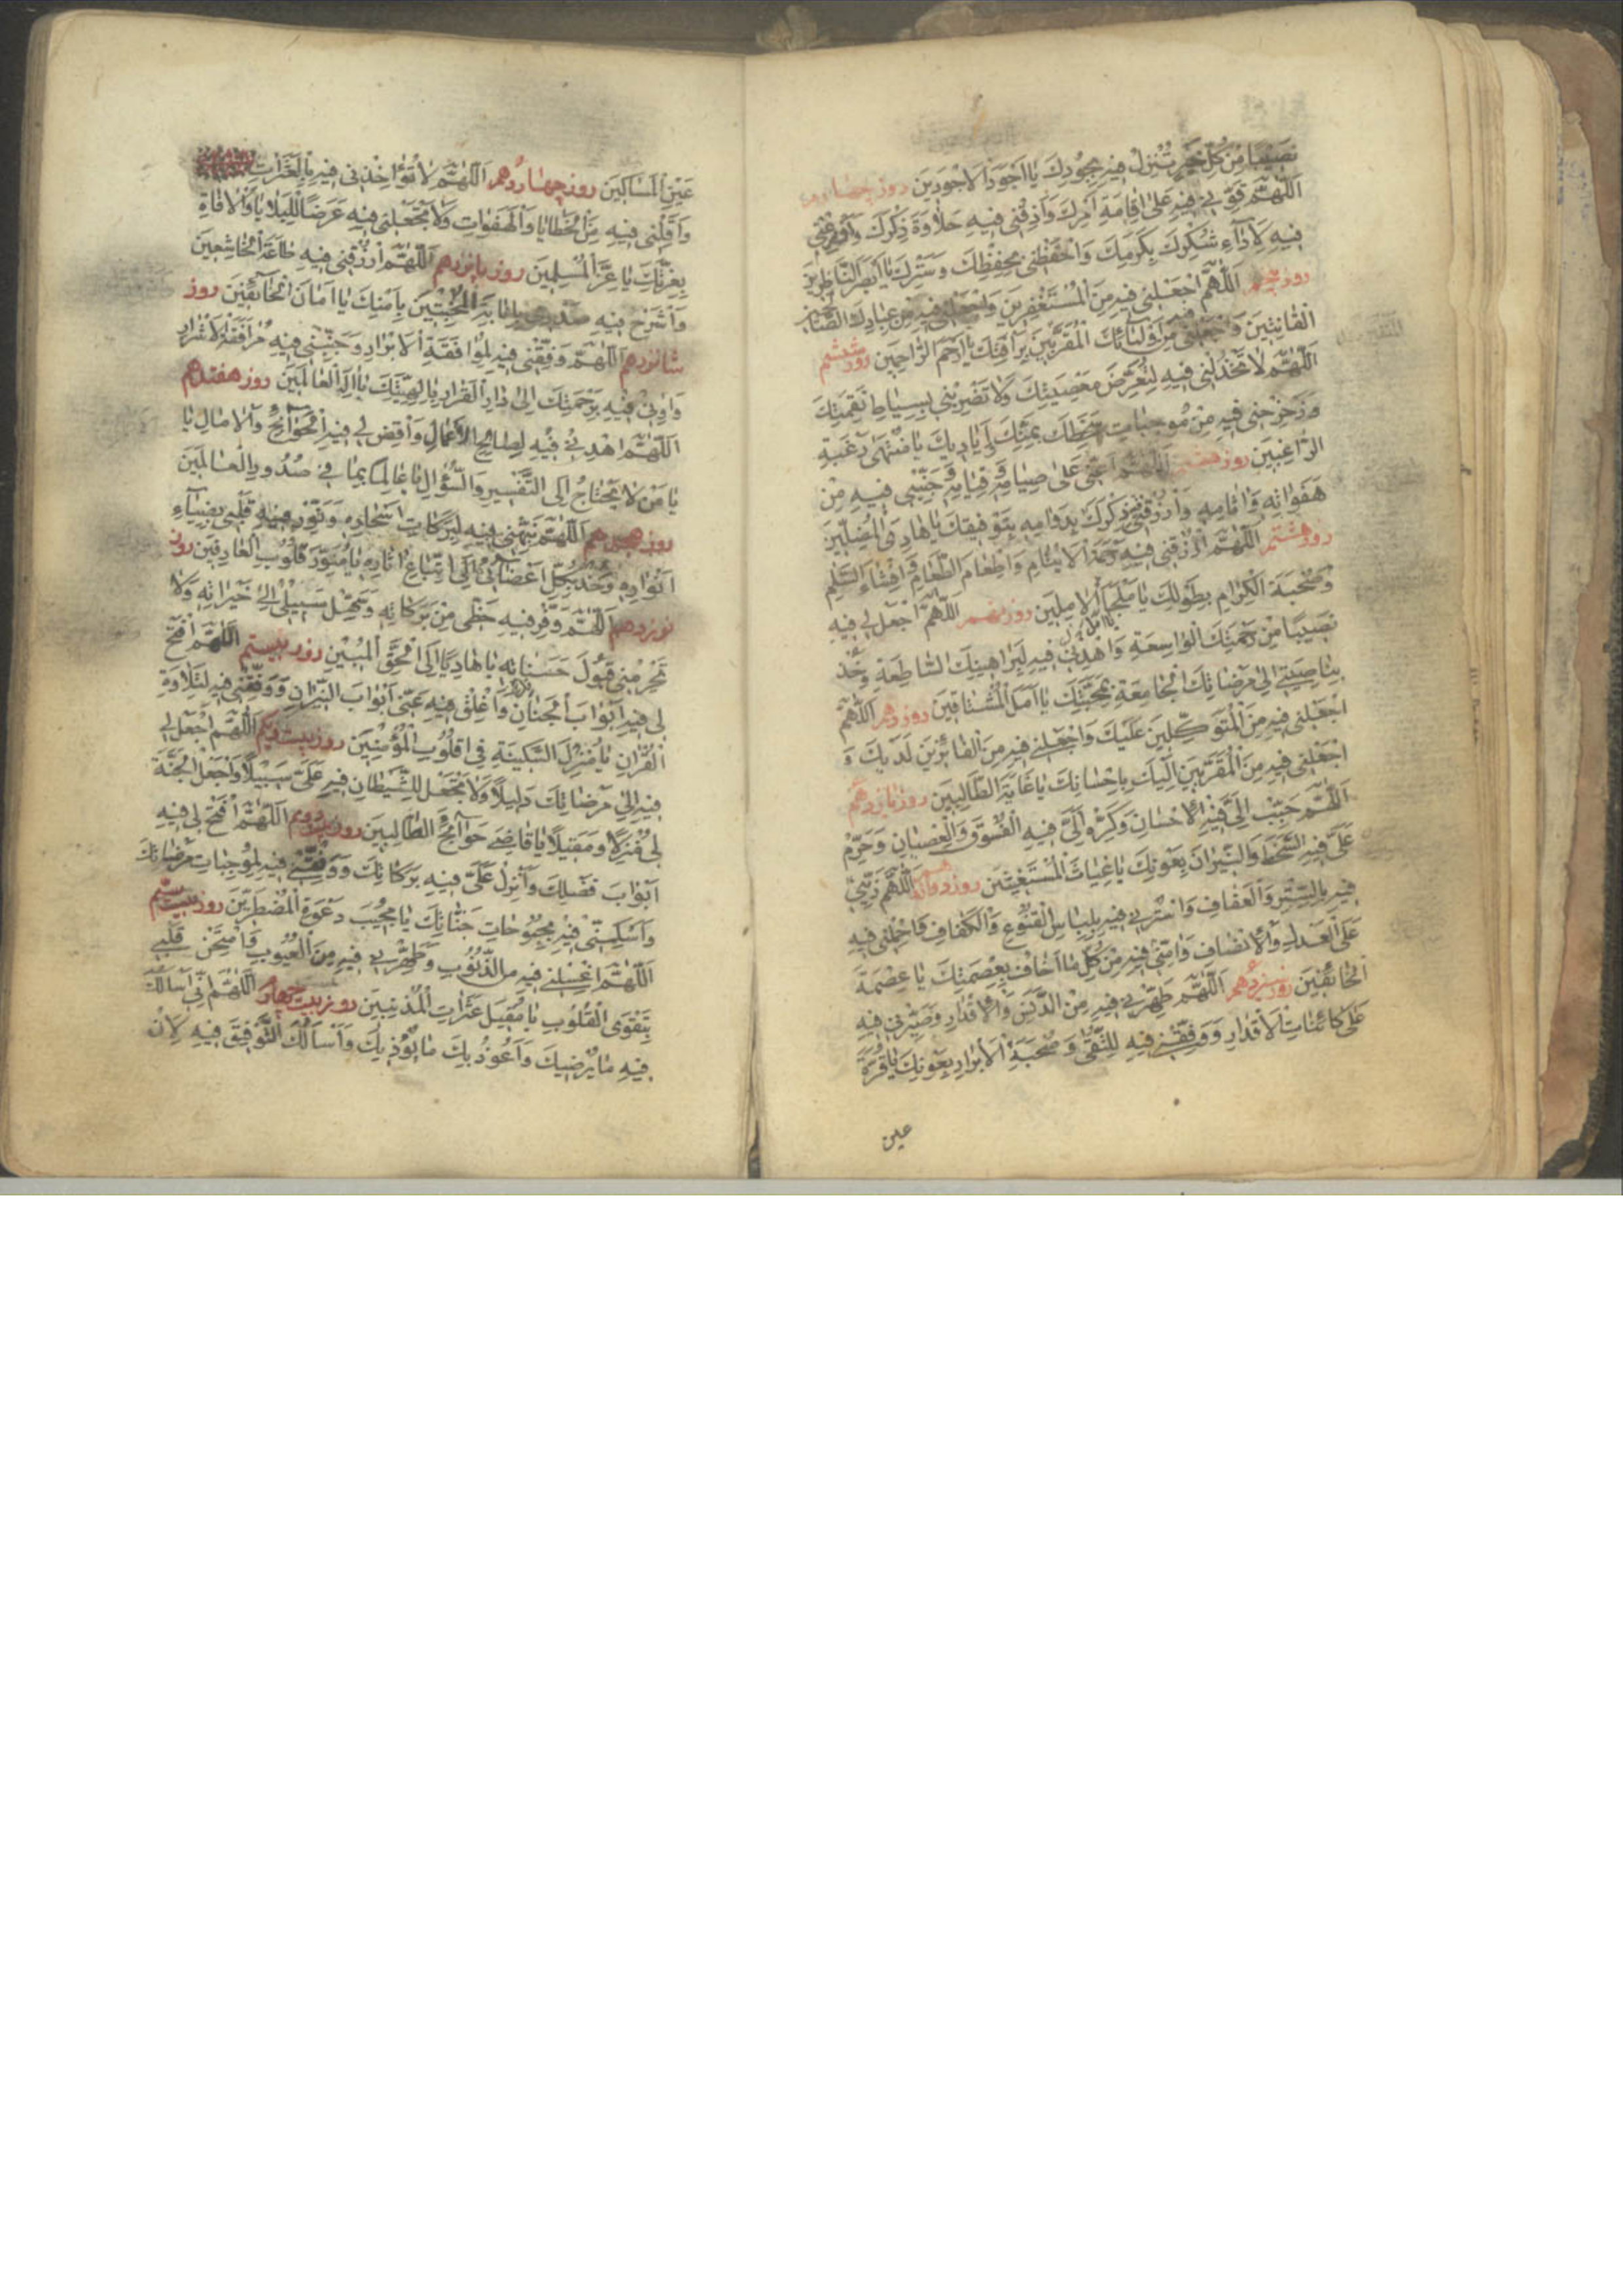 نَصِيبًا مِنْ كُلِّ خَيْرٍ تُنْزِلُ فِيهِ بِجُودِكَ يَا اَجْوَدَ الْاَجْوَدِينَ روز چهارم
اَللّهُمَّ قَوِّنِي فِيهِ عَلىٰ اِقَامَةِ اَمْرِكَ وَاَذِقْنِي فِيهِ حَلَاوَةَ ذِكْرِكَ وَاَوْزِعْنِي
فِيهِ لِاَدَآءِ شُكْرِكَ بِكَرَمِكَ وَاحْفَظْنِي بِحِفْظِكَ وَسَتْرِكَ يَا اَبْصَرَ النَّاظِرِينَ
روز پنجم اَللّهُمَّ اجْعَلْنِي فِيهِ مِنَ الْمُسْتَغْفِرِينَ وَاجْعَلْنِي فِيهِ مِنْ عِبَادِكَ الصَّالِحِينَ
الْقَانِتِينَ وَاجْعَلْنِي مِنْ اَوْلِيَائِكَ الْمُقَرَّبِينَ بِرَأْفَتِكَ يَا اَرْحَمَ الرَّاحِمِينَ روز ششم
اَللّهُمَّ لَا تَخْذُلْنِي فِيهِ لِتَعَرُّضِ مَعْصِيَتِكَ وَلَا تَضْرِبْنِي بِسِيَاطِ نَقِمَتِكَ
وَزَحْزِحْنِي فِيهِ مِنْ مُوجِبَاتِ سَخَطِكَ بِمَنِّكَ وَاَيَادِيكَ يَا مُنْتَهىٰ رَغْبَةِ
الرَّاغِبِينَ روز هفتم اَللّهُمَّ اَعِنِّي عَلىٰ صِيَامِهِ وَقِيَامِهِ وَجَنِّبْنِي فِيهِ مِنْ
هَفَوَاتِهِ وَاٰثَامِهِ وَارْزُقْنِي ذِكْرَكَ بِدَوَامِهِ بِتَوْفِيقِكَ يَا هَادِيَ الْمُضِلِّينَ
روز هشتم اَللّهُمَّ ارْزُقْنِي فِيهِ رَحْمَةَ الْاَيْتَامِ وَاِطْعَامَ الطَّعَامِ وَاِفْشَاءَ السَّلَمِ
وَصُحْبَةَ الْكِرَامِ بِطَوْلِكَ يَا مَلْجَأَ الْاٰمِلِينَ روز نهم اَللّهُمَّ اجْعَلْ لِي فِيهِ
نَصِيبًا مِنْ رَحْمَتِكَ الْوَاسِعَةِ وَاهْدِنِي فِيهِ لِبَرَاهِينِكَ السَّاطِعَةِ وَخُذْ
بِنَاصِيَتِي اِلىٰ مَرْضَاتِكَ الْجَامِعَةِ بِمَحَبَّتِكَ يَا اَمَلَ الْمُشْتَاقِينَ روز دهم اَللّهُمَّ
اجْعَلْنِي فِيهِ مِنَ الْمُتَوَكِّلِينَ عَلَيْكَ وَاجْعَلْنِي فِيهِ مِنَ الْفَائِزِينَ لَدَيْكَ وَ
اجْعَلْنِي فِيهِ مِنَ الْمُقَرَّبِينَ اِلَيْكَ بِاِحْسَانِكَ يَا غَايَةَ الطَّالِبِينَ روز يازدهم
اَللّهُمَّ حَبِّبْ اِلَيَّ فِيهِ الْاِحْسَانَ وَكَرِّهْ اِلَيَّ فِيهِ الْفُسُوقَ وَالْعِصْيَانَ وَحَرِّمْ
عَلَيَّ فِيهِ السَّخَطَ وَالنِّيرَانَ بِعَوْنِكَ يَا غِيَاثَ الْمُسْتَغِيثِينَ روز دوازدهم اَللّهُمَّ زَيِّنِّي
فِيهِ بِالسِّتْرِ وَالْعَفَافِ وَاسْتُرْنِي فِيهِ بِلِبَاسِ الْقُنُوعِ وَالْكَفَافِ وَاحْمِلْنِي فِيهِ
عَلَى الْعَدْلِ وَالْاِنْصَافِ وَاٰمِنِّي فِيهِ مِنْ كُلِّ مَا اَخَافُ بِعِصْمَتِكَ يَا عِصْمَةَ
الْخَائِفِينَ روز سيزدهم اَللّهُمَّ طَهِّرْنِي فِيهِ مِنَ الدَّنَسِ وَالْاَقْذَارِ وَصَبِّرْنِي فِيهِ
عَلىٰ كَائِنَاتِ الْاَقْدَارِ وَوَفِّقْنِي فِيهِ لِلتُّقىٰ وَصُحْبَةِ الْاَبْرَارِ بِعَوْنِكَ يَا قُرَّةَ
عين
عَيْنِ الْمَسَاكِينَ روز چهاردهم اَللّهُمَّ لَا تُؤَاخِذْنِي فِيهِ بِالْعَثَرَاتِ
وَاَقِلْنِي فِيهِ مِنَ الْخَطَايَا وَالْهَفَوَاتِ وَلَا تَجْعَلْنِي فِيهِ عَرَضًا لِلْبَلَايَا وَالْاٰفَاةِ
بِعِزَّتِكَ يَا عِزَّ الْمُسْلِمِينَ روز پانزدهم اَللّهُمَّ ارْزُقْنِي فِيهِ طَاعَةَ الْخَاشِعِينَ
وَاشْرَحْ فِيهِ صَدْرِي بِاِنَابَةِ الْمُخْبِتِينَ بِاَمْنِكَ يَا اَمَانَ الْخَائِفِينَ روز
شانزدهم اَللّهُمَّ وَفِّقْنِي فِيهِ لِمُوَافَقَةِ الْاَبْرَارِ وَجَنِّبْنِي فِيهِ مُرَافَقَةَ الْاَشْرَارِ
وَاٰوِنِي فِيهِ بِرَحْمَتِكَ اِلىٰ دَارِ الْقَرَارِ بِاِلٰهِيَّتِكَ يَا اِلٰهَ الْعَالَمِينَ روز هفدهم
اَللّهُمَّ اهْدِنِي فِيهِ لِصَالِحِ الْاَعْمَالِ وَاقْضِ لِي فِيهِ الْحَوَائِجَ وَالْاٰمَالَ يَا
يَا مَنْ لَا يَحْتَاجُ اِلَى التَّفْسِيرِ وَالسُّؤَالِ يَا عَالِمًا بِمَا فِي صُدُورِ الْعَالَمِينَ
روز هجدهم اَللّهُمَّ نَبِّهْنِي فِيهِ لِبَرَكَاتِ اَسْحَارِهِ وَنَوِّرْ فِيهِ قَلْبِي بِضِيَآءِ
اَنْوَارِهِ وَخُذْ بِكُلِّ اَعْضَائِي اِلَى اتِّبَاعِ اٰثَارِهِ يَا مُنَوِّرَ قُلُوبِ الْعَارِفِينَ روز
نوزدهم اَللّهُمَّ وَفِّرْ فِيهِ حَظِّي مِنْ بَرَكَاتِهِ وَسَهِّلْ سَبِيلِي اِلىٰ خَيْرَاتِهِ وَلَا
تَحْرِمْنِي قَبُولَ حَسَنَاتِهِ يَا هَادِيًا اِلَى الْحَقِّ الْمُبِينِ روز بيستم اَللّهُمَّ افْتَحْ
لِي فِيهِ اَبْوَابَ الْجِنَانِ وَاَغْلِقْ فِيهِ عَنِّي اَبْوَابَ النِّيرَانِ وَوَفِّقْنِي فِيهِ لِتِلَاوَةِ
الْقُرْاٰنِ يَا مُنْزِلَ السَّكِينَةِ فِي قُلُوبِ الْمُؤْمِنِينَ روز بيست ويكم اَللّهُمَّ اجْعَلْ لِي
فِيهِ اِلىٰ مَرْضَاتِكَ دَلِيلًا وَلَا تَجْعَلْ لِلشَّيْطَانِ فِيهِ عَلَيَّ سَبِيلًا وَاجْعَلِ الْجَنَّةَ
لِي مَنْزِلًا وَمَقِيلًا يَا قَاضِيَ حَوَائِجِ الطَّالِبِينَ روز دويم اَللّهُمَّ افْتَحْ لِي فِيهِ
اَبْوَابَ فَضْلِكَ وَاَنْزِلْ عَلَيَّ فِيهِ بَرَكَاتِكَ وَوَفِّقْنِي فِيهِ لِمُوجِبَاتِ مَرْضَاتِكَ
وَاَسْكِنِّي فِيهِ بُحْبُوحَاتِ جَنَّاتِكَ يَا مُجِيبَ دَعْوَةِ الْمُضْطَرِّينَ روز بيست سيم
اَللّهُمَّ اغْسِلْنِي فِيهِ مِنَ الذُّنُوبِ وَطَهِّرْنِي فِيهِ مِنَ الْعُيُوبِ وَامْتَحِنْ قَلْبِي
بِتَقْوَى الْقُلُوبِ يَا مُقِيلَ عَثَرَاتِ الْمُذْنِبِينَ روز بيست چهارم اَللّهُمَّ اِنِّي اَسْاَلُكَ
فِيهِ مَا يُرْضِيكَ وَاَعُوذُ بِكَ مَا يُؤْذِيكَ وَاَسْاَلُكَ التَّوْفِيقَ فِيهِ لِاَنْ